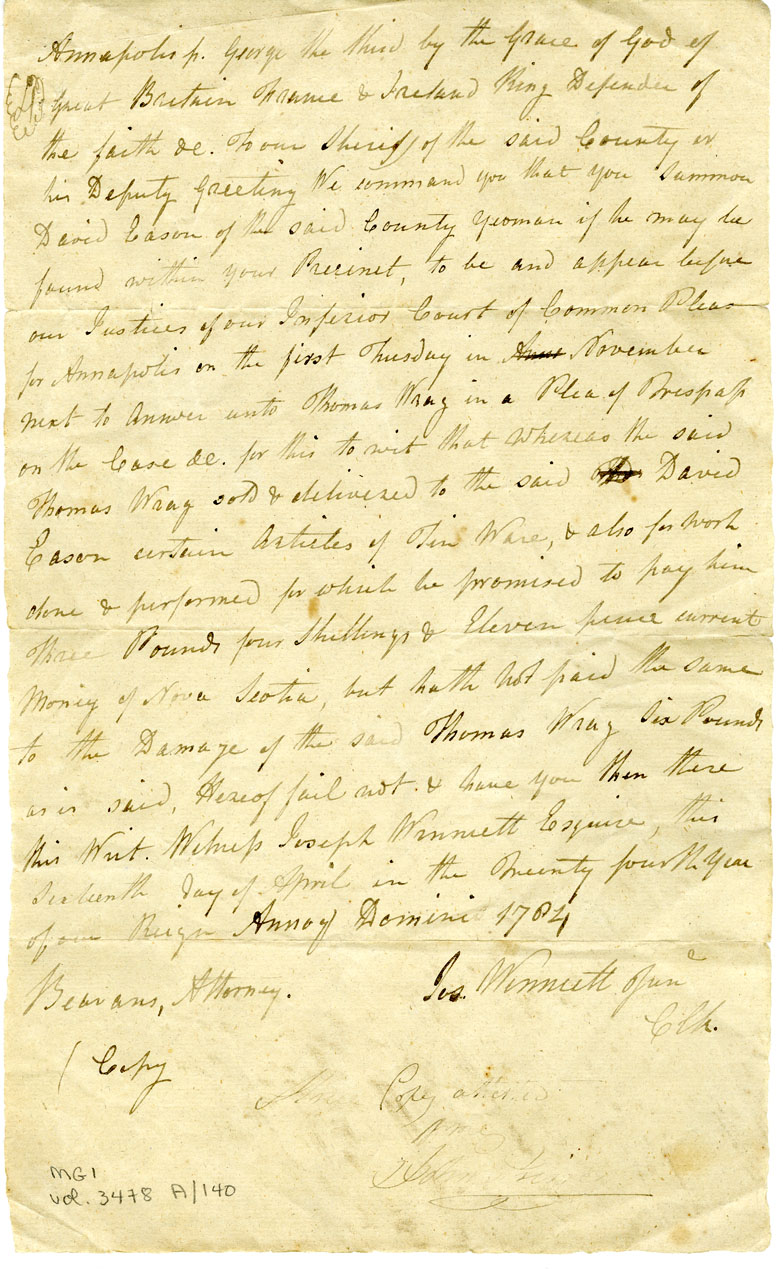 Annapolis p. George the third by the Grace of God of
Great Britain France & Ireland King Defender of
the faith &c. To our Sheriff of the said County or
his Deputy Greeting We command you that you Summon
David Eason of the said County Yeoman if he may be
found within your Precinct, to be and appear before
our Justices of our Inferior Court of Common Pleas
for Annapolis on the first Tuesday in November
next to Answer unto Thomas Wray in a Plea of Trespass
on the Case &c. for this to wit that whereas the said
Thomas Wray sold & delivered to the said David
Eason certain Articles of Tin Ware, & also for work
done & performed for which he promised to pay him
Three Pounds four Shillings & Eleven pence current
Money of Nova Scotia, but hath not paid the same
to the Damage of the said Thomas Wray Six Pounds
as is said, Hereof fail not. & have you then there
this Writ. Witness Joseph Winniett Esquire, this
Sixteenth day of April in the Twenty fourth Year
of our Reign Annoq Domini 1784
Beavans, Attorney.
Jos. Winniett Junr
Clk.
(Copy
Copy
MG1
vol. 3478 A/140